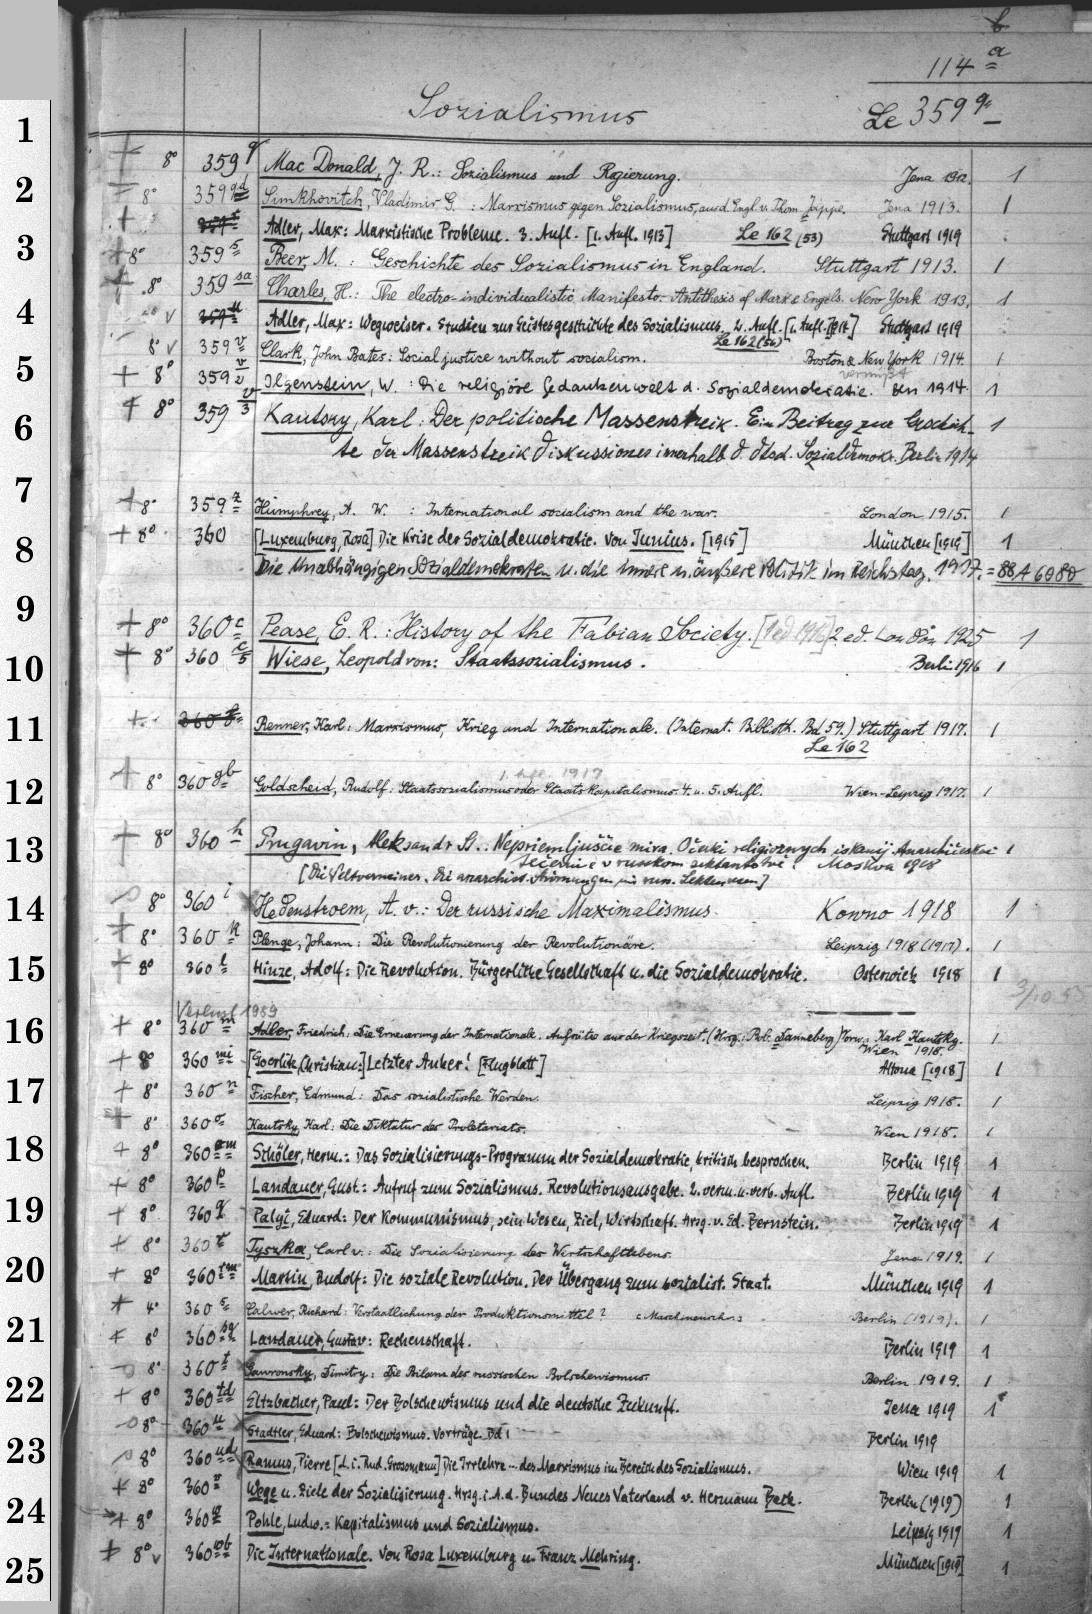 b
a
114
Sozialismus
Le 359 q
1
8° 359 q Mac Donald, J. R.: Sozialismus und Regierung. Jena 1912. 1
2
8° 359 qd Simkhovitch, Vladimir G. : Marxismus gegen Sozialismus, aus d. Engl. v. Thom. Jappe. Jena 1913. 1
359 r Adler, Max: Marxistische Probleme. 3. Aufl. [1. Aufl. 1913] Le 162 (53) Stuttgart 1919
3
8° 359 s Beer, M. : Geschichte des Sozialismus in England. Stuttgart 1913. 1
8° 359 sa Charles, H.: The electro-individualistic Manifesto. Antithesis of Marx & Engels. New York 1913. 1
4
359 u Adler, Max: Wegweiser. Studien zur Geistesgeschichte des Sozialismus. 2. Aufl. [1. Aufl. 1914] Stuttgart 1919
Le 162 (56)
8° v 359 v Clark, John Bates: Social justice without socialism. Boston & New York 1914. 1
vermißt
5
8° 359 v/2 Ilgenstein, W. : Die religiöse Gedankenwelt d. Sozialdemokratie. Bln 1914. 1
6
8° 359 v/3 Kautsky, Karl: Der politische Massenstreik. Ein Beitrag zur Geschich- 1
te der Massenstreik Diskussionen innerhalb d. dtsch. Sozialdemokr. Berlin 1914
7
8° 359 z Humphrey, A. W. : International socialism and the war. London 1915. 1
8
8° 360 [Luxemburg, Rosa] Die Krise der Sozialdemokratie. Von Junius. [1915] München [1919] 1
Die Unabhängigen Sozialdemokraten u. die innere u. äußere Politik im Reichstag. 1917. = 88 A 6080
9
8° 360 c Pease, E. R.: History of the Fabian Society. [1 ed 1916] 2 ed. London 1925 1
10
8° 360 c/5 Wiese, Leopold von: Staatssozialismus. Berlin 1916 1
11
360 f Renner, Karl: Marxismus, Krieg und Internationale. (Internat. Biblioth. Bd 59.) Stuttgart 1917. 1
Le 162
1. Afl. 1917
12
8° 360 gb Goldscheid, Rudolf: Staatssozialismus oder Staatskapitalismus. 4. u. 5. Aufl. Wien-Leipzig 1917. 1
13
8° 360 h Prugavin, Aleksandr St.: Nepriemljuščie mira. Očerki religioznych iskanij Anarchičeskoe 1
tečenie v russkom sektantstvě. Moskva 1918
[Die Weltverneiner. Die anarchist. Strömungen im russ. Sektenwesen]
14
8° 360 i Hedenstroem, A. v.: Der russische Maximalismus. Kowno 1918 1
8° 360 k Plenge, Johann: Die Revolutionierung der Revolutionäre. Leipzig 1918 (1917). 1
15
8° 360 l Hinze, Adolf: Die Revolution. Bürgerliche Gesellschaft u. die Sozialdemokratie. Osterwieck 1918 1
3/10 5
Verlust 1989
16
8° 360 m Adler, Friedrich: Die Erneuerung der Internationale. Aufsätze aus der Kriegszeit. (Hrsg.: Rob. Danneberg) Vorw.: Karl Kautsky. 1
Wien 1918.
8° 360 mi [Goerlitz, Christian:] Letzter Anker! [Flugblatt] Altona [1918] 1
17
8° 360 n Fischer, Edmund: Das sozialistische Werden. Leipzig 1918. 1
8° 360 o Kautsky, Karl: Die Diktatur des Proletariats. Wien 1918. 1
18
8° 360 om Schöler, Herm.: Das Sozialisierungs-Programm der Sozialdemokratie kritisch besprochen. Berlin 1919 1
8° 360 p Landauer, Gust.: Aufruf zum Sozialismus. Revolutionsausgabe. 2. verm. u. verb. Aufl. Berlin 1919 1
19
8° 360 q Palyi, Eduard: Der Kommunismus, sein Wesen, Ziel, Wirtschaft. Hrsg. v. Ed. Bernstein. Berlin 1919 1
8° 360 r Tyszka, Carl v.: Die Sozialisierung des Wirtschaftslebens. Jena 1919. 1
20
8° 360 rm Martin, Rudolf: Die soziale Revolution. Der Übergang zum sozialist. Staat. München 1919 1
4° 360 s Calwer, Richard: Verstaatlichung der Produktionsmittel? Berlin (1919). 1
21
8° 360 sg Landauer, Gustav: Rechenschaft. Berlin 1919 1
8° 360 t Gawronsky, Dimitry: Die Bilanz des russischen Bolschewismus. Berlin 1919. 1
22
8° 360 td Eltzbacher, Paul: Der Bolschewismus und die deutsche Zukunft. Jena 1919 1
8° 360 u Stadtler, Eduard: Bolschewismus. Vorträge. Bd 1 Berlin 1919
23
8° 360 ud Ramus, Pierre [d. i. Rud. Grossmann] Die Irrlehre ... des Marxismus im Bereich des Sozialismus. Wien 1919 1
8° 360 v Wege u. Ziele der Sozialisierung. Hrsg. i. A. d. Bundes Neues Vaterland v. Hermann Beck. Berlin (1919) 1
24
8° 360 w Pohle, Ludw.: Kapitalismus und Sozialismus. Leipzig 1919 1
25
8° v 360 wb Die Internationale. Von Rosa Luxemburg u. Franz Mehring. München [1919] 1